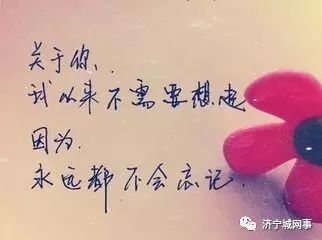 关于你、
我从来不需要想起
因为.
永远都不会忘记.
济宁城网事